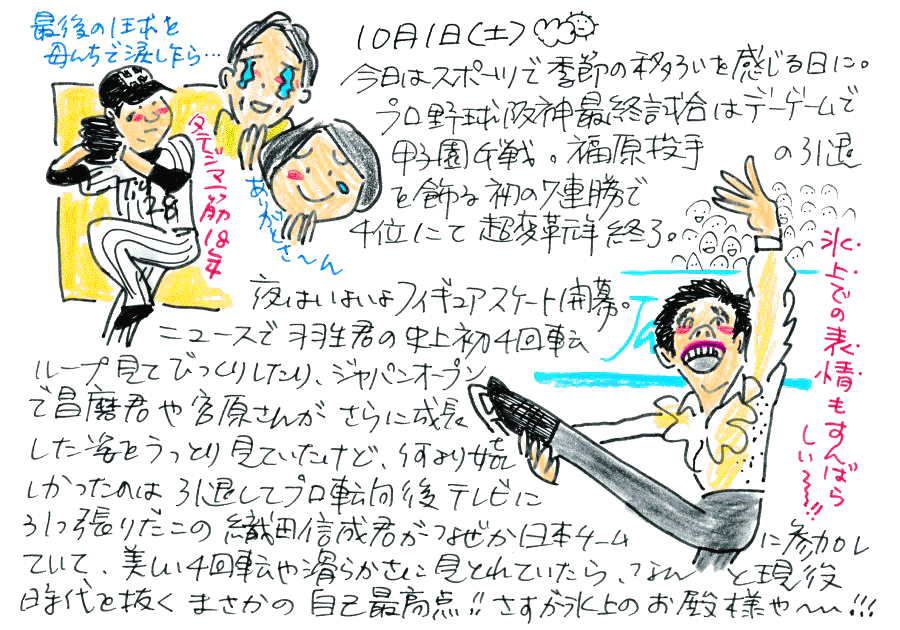 最後の1球を
母んちで涙したら…
10月1日(土)
今日はスポーツで季節の移ろいを感じる日に。
プロ野球阪神最終試合はデーゲームで
甲子園G戦。福原投手の引退
を飾る初の7連勝で
4位にて超変革元年終了。
タテジマ一筋18年
ありがとさ〜ん
夜はいよいよフィギュアスケート開幕。
ニュースで羽生君の史上初4回転
ループ見てびっくりしたり、ジャパンオープン
で昌磨君や宮原さんがさらに成長
した姿をうっとり見ていたけど、何より嬉
しかったのは引退してプロ転向後テレビに
引っ張りだこの織田信成君がなぜか日本チームに参加し
ていて、美しい4回転や滑らかさに見とれていたら、なんと現役
時代を抜くまさかの自己最高点!!さすが氷上のお殿様や〜!!!
氷上での表情もすんばら
しい〜!!
Ja
28